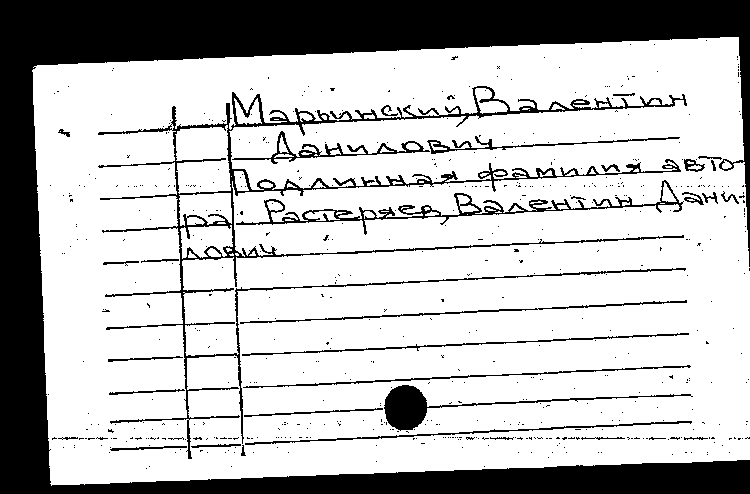 Марьинский, Валентин
Данилович.
Подлинная фамилия авто-
ра: Растеряев, Валентин Дани-
лович.